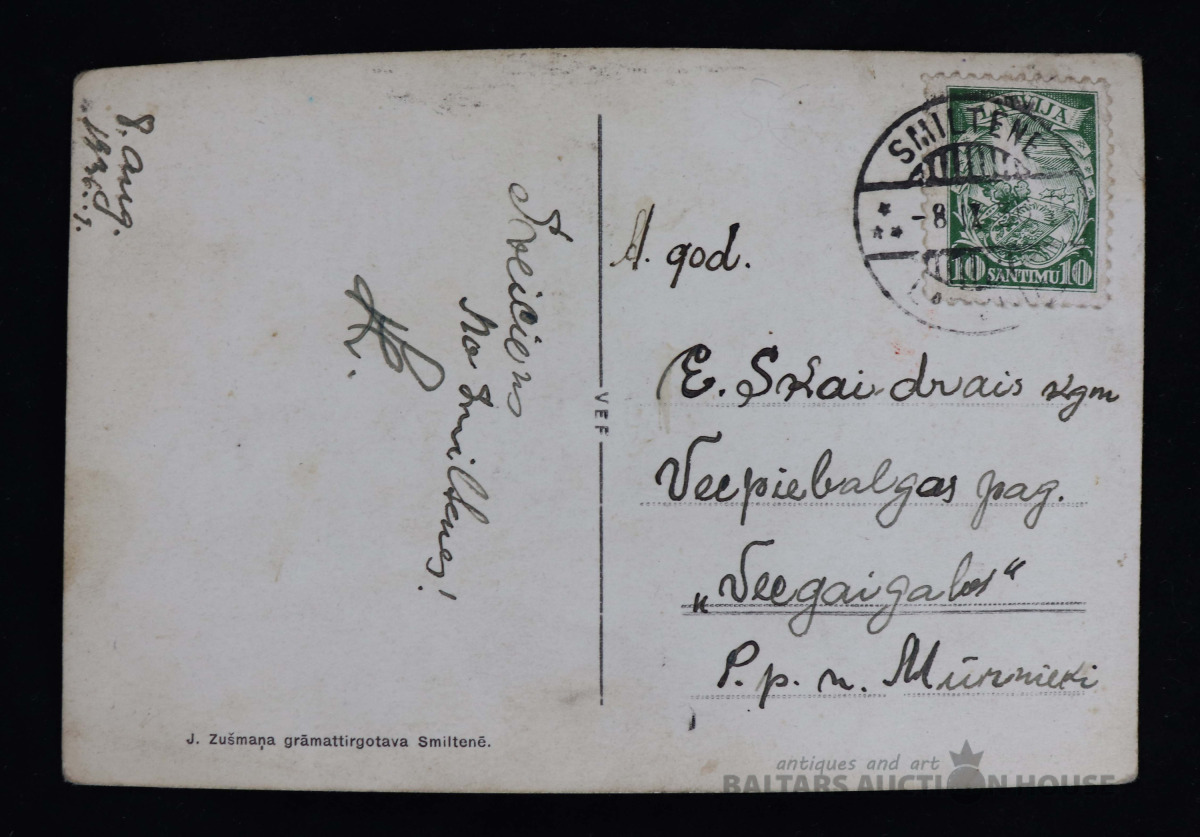 8. aug.
Sveiciens
no Smiltenes!
A. god.
E. Skaidrais kgm
Veepiebalgas pag.
„Veegaigalos“
P. p. n. Mūrnieki
VEF
J. Zušmaņa grāmattirgotava Smiltenē.
LATVIJA
10 SANTIMU 10
SMILTENE
-8.
antiques and art
BALTARS AUCTION HOUSE